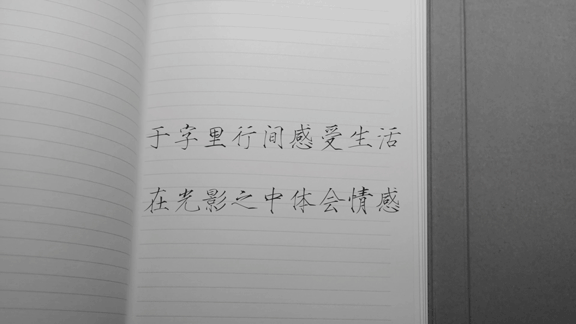 于字里行间感受生活
在光影之中体会情感